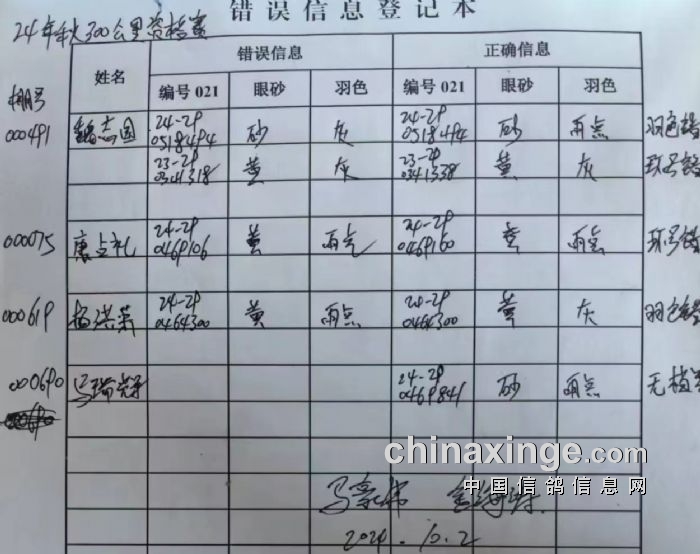 错误信息登记本
24年秋300公里资格赛
棚号 姓名 错误信息 正确信息
编号021 眼砂 羽色 编号021 眼砂 羽色
000491 魏志国 24-29 0518494 砂 灰 24-29 0518494 砂 雨点 羽色错
23-29 0341318 黄 灰 23-29 0341338 黄 灰 环号错
000075 唐占礼 24-29 0469106 黄 雨点 24-29 0469160 黄 雨点 环号错
000619 杨洪 24-29 0464300 黄 雨点 24-29 0464300 黄 灰 羽色错
000690 马瑞 24-29 0469841 砂 雨点 无档
chinaxinge.com
中国信鸽信息网
2024.10.2